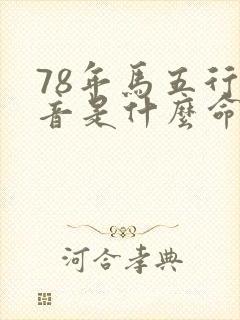 78年馬五行
音是什麼命
河合孝典